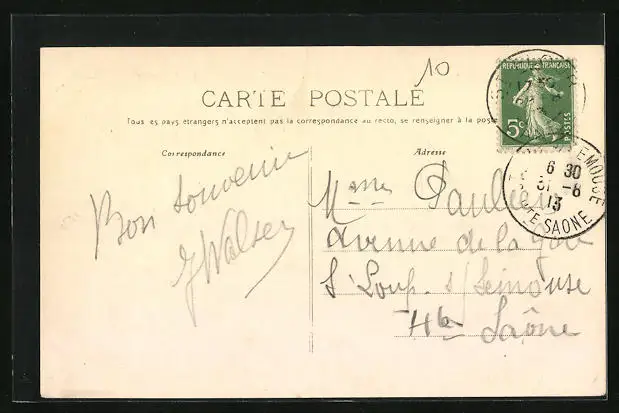 10
CARTE POSTALE
Tous les pays étrangers n'acceptent pas la correspondance au recto, se renseigner à la poste
Correspondance
Adresse
REPUBLIQUE FRANÇAISE
5c
POSTES
6 30
31 -8
13
HTE SAONE
Bon souvenir
Mme
Avenue de la gare
St Loup s/ Semouse
Hte Saône